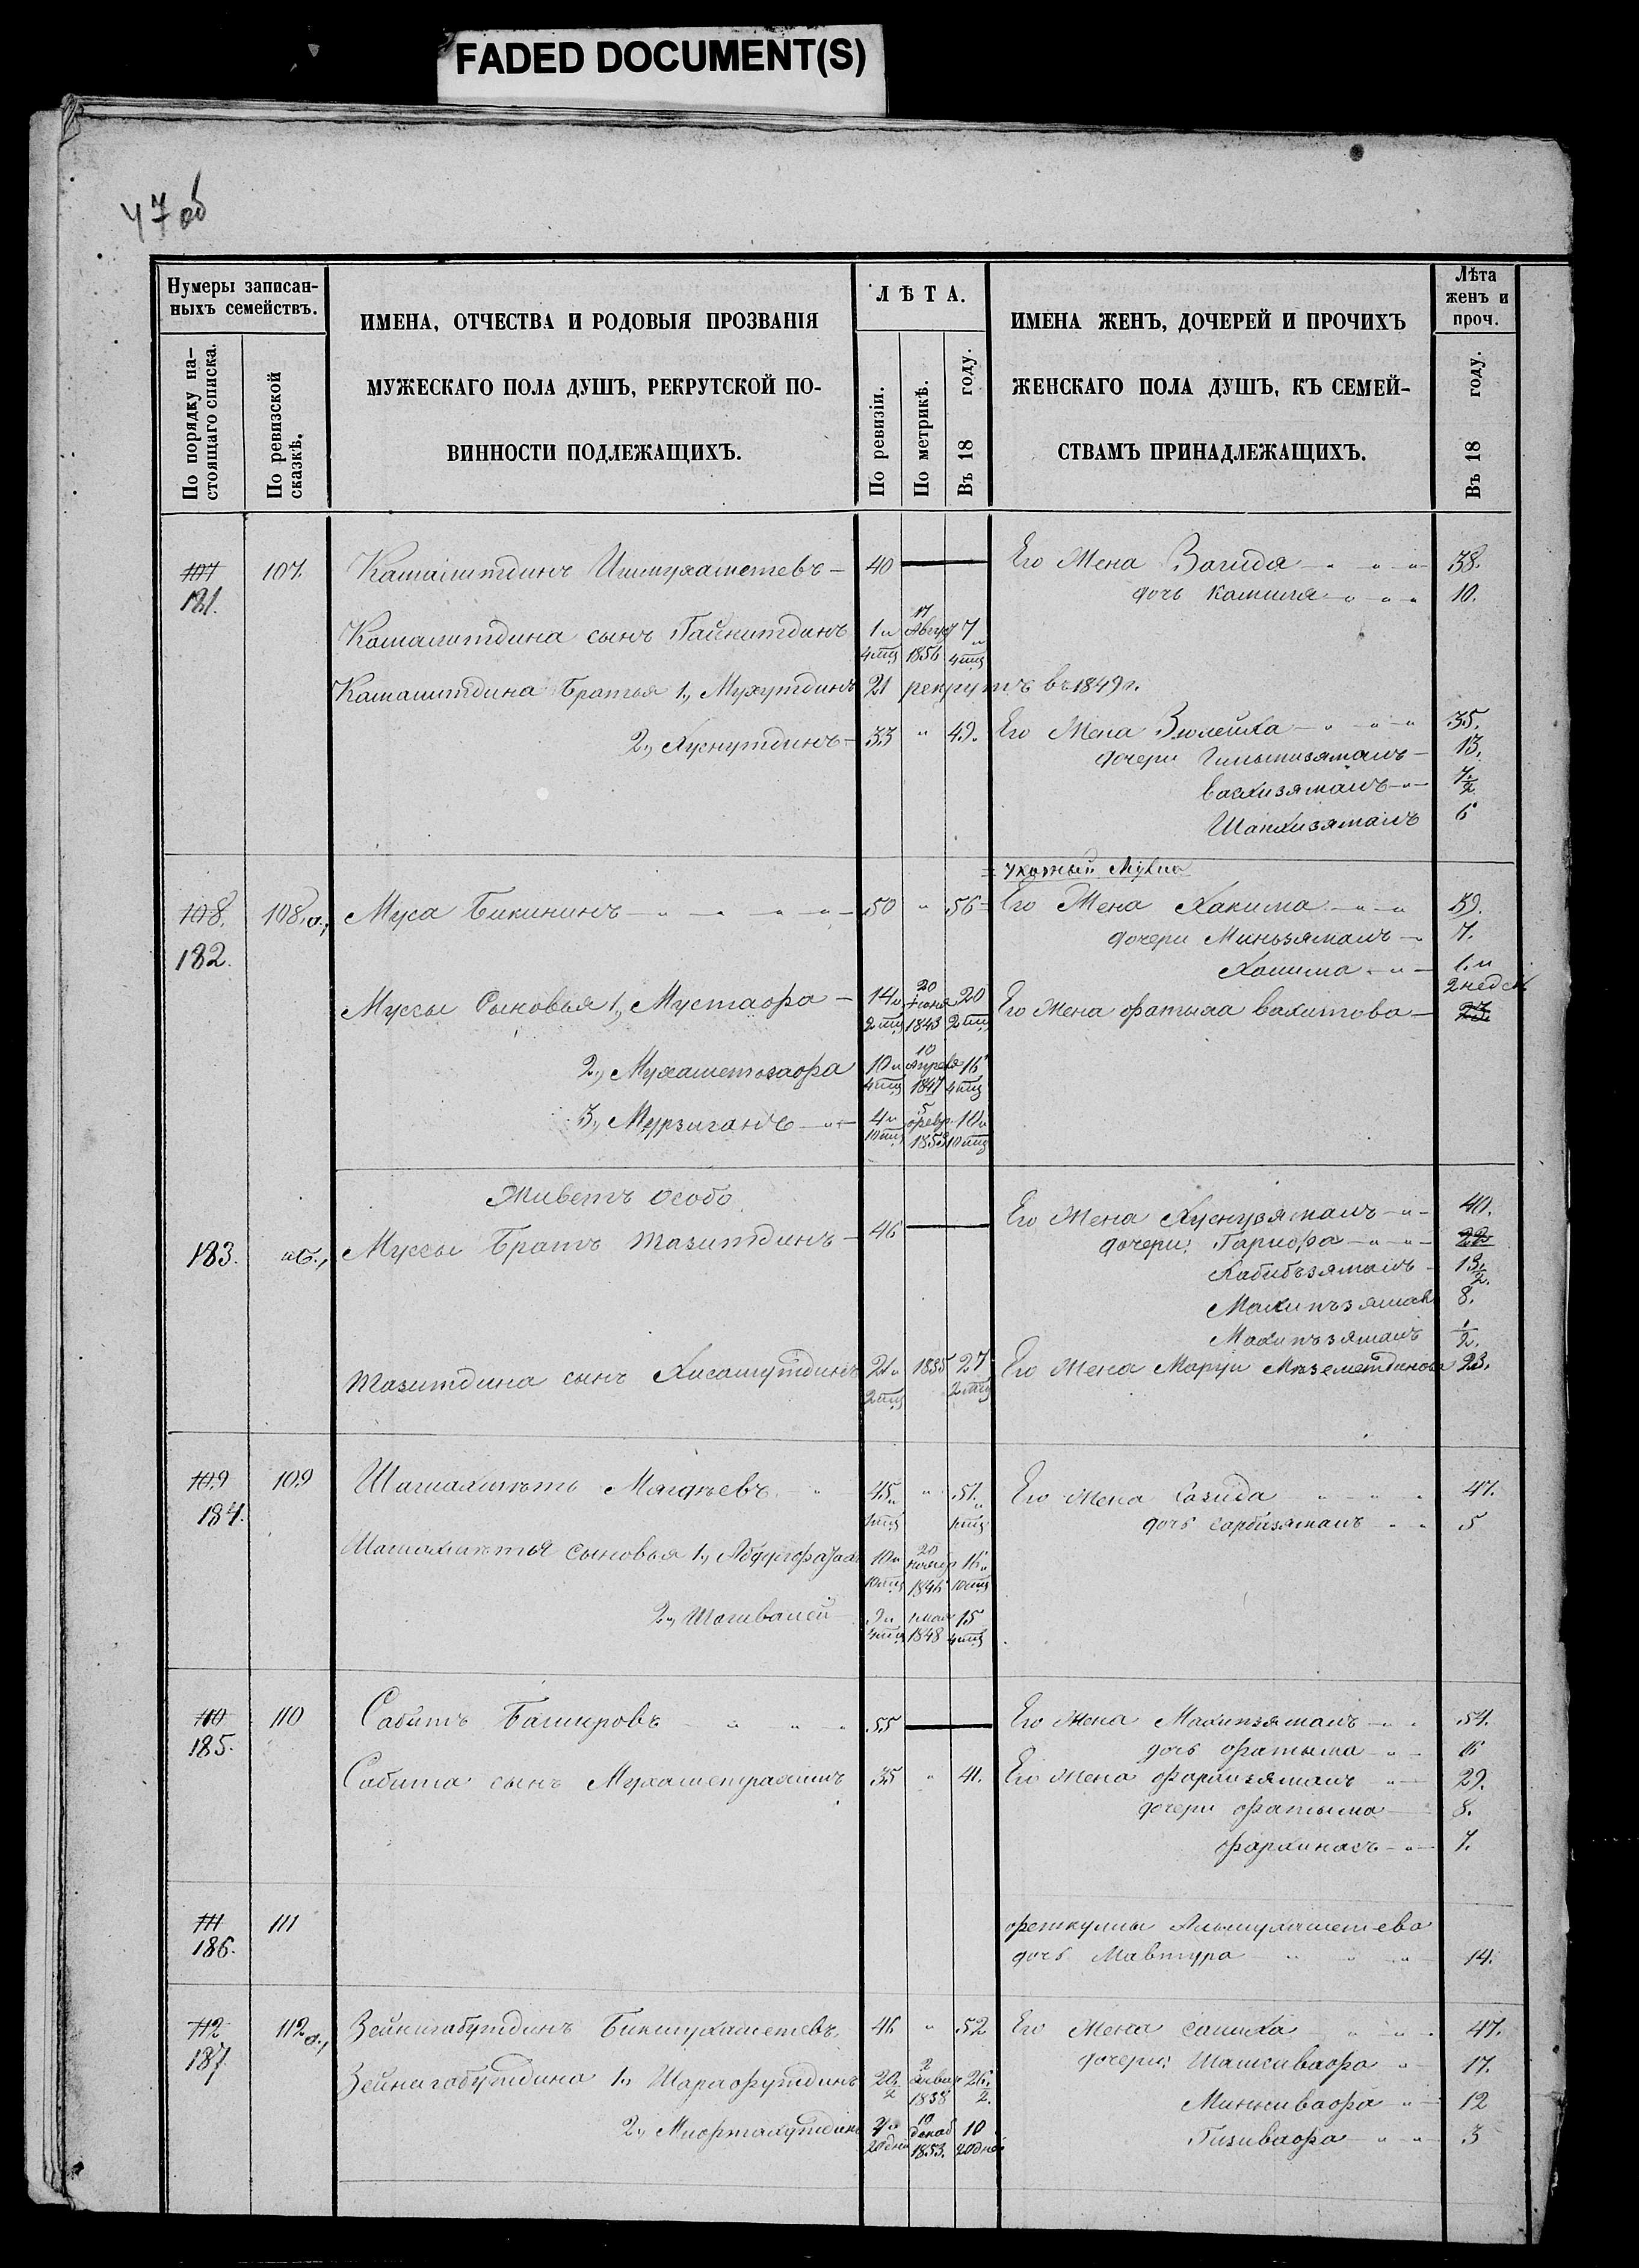 FADED DOCUMENT(S)
47 об
Нумеры записан-
ныхъ семействъ.
По порядку на-
стоящаго списка.
По ревизской
сказкѣ.
ИМЕНА, ОТЧЕСТВА И РОДОВЫЯ ПРОЗВАНІЯ
МУЖЕСКАГО ПОЛА ДУШЪ, РЕКРУТСКОЙ ПО-
ВИННОСТИ ПОДЛЕЖАЩИХЪ.
ЛѢТА.
По ревизіи.
По метрикѣ.
Въ 18 году.
ИМЕНА ЖЕНЪ, ДОЧЕРЕЙ И ПРОЧИХЪ
ЖЕНСКАГО ПОЛА ДУШЪ, КЪ СЕМЕЙ-
СТВАМЪ ПРИНАДЛЕЖАЩИХЪ.
Лѣта
женъ и
проч.
Въ 18 году.
107 107. Камалитдинъ Ишмухаметевъ 40 Его Жена Вагида 38.
181. дочь Камиля 10.
Камалитдина сынъ Гайнитдинъ 1 и 4 мц 17 Авгу 1856 7 и 4 мц
Камалитдина Братья 1, Мухутдинъ 21 рекрутъ въ 1849 г.
2, Хуснутдинъ 33 " 49. Его Жена Зюлейха 35.
дочери Гильмизямалъ 13.
Васхизямалъ 7/2
Шамхизямалъ 6
108. 108,а, Муса Бикининъ 50 " 56 Его Жена Хакима 59.
182. дочери Миньзямалъ 7.
Халима 1. и 2 недел
Муссы Сыновья 1, Мустафа 14 и 2 мц 20 іюня 1843 20 2 мц Его Жена Фатыма Вахитова 23.
2, Мухаметзафа 10 и 4 мц 10 апрел 1847 16 4 мц
3, Мурзиганъ 4 и 10 мц 5 февр 1853 10 и 10 мц
Живетъ особо
183. б., Муссы Братъ Тазитдинъ 46 Его Жена Хуснузямалъ 40.
дочери: Гарифа 22
Хабибзямалъ 13/2.
8.
1/2.
Тазитдина сынъ Хисамутдинъ 21 и 2 мц 1835 27 2 мц Его Жена 23.
109 109 Шагиахметь Магдѣевъ 45 и " 51. и Его Жена Сазида 47.
184. дочь Сарбизямалъ 5
Шагиахметя сыновья 1, 10 и 10 мц 20 ноябр 1846 16 и 10 мц
2, Шагивалей 9 и 4 мц 1 мая 1848 15 4 мц
110 110 Сабитъ Башировъ 55 Его Жена Махипзямалъ 54.
185. дочь Фатыма 16
Сабита сынъ Мухаметрахимъ 35 " 41. Его Жена Фархизямалъ 29.
дочери Фатыма 8.
Фархинасъ 7.
111 111 Феткуллы Альмухаметева
186. дочь Мавтура 14.
112 112 а, Зейнигабутдинъ Бикмухаметевъ 46 " 52 Его Жена Салиха 47.
187. дочери: Шамсивафа 17.
Зейнигабутдина 1, Шарафутдинъ 20/2 2 1838 26./2. Миннивафа 12
2, Мифтахутдинъ 4 и 20 дне 10 декаб 1853. 10 20 дне Газивафа 3